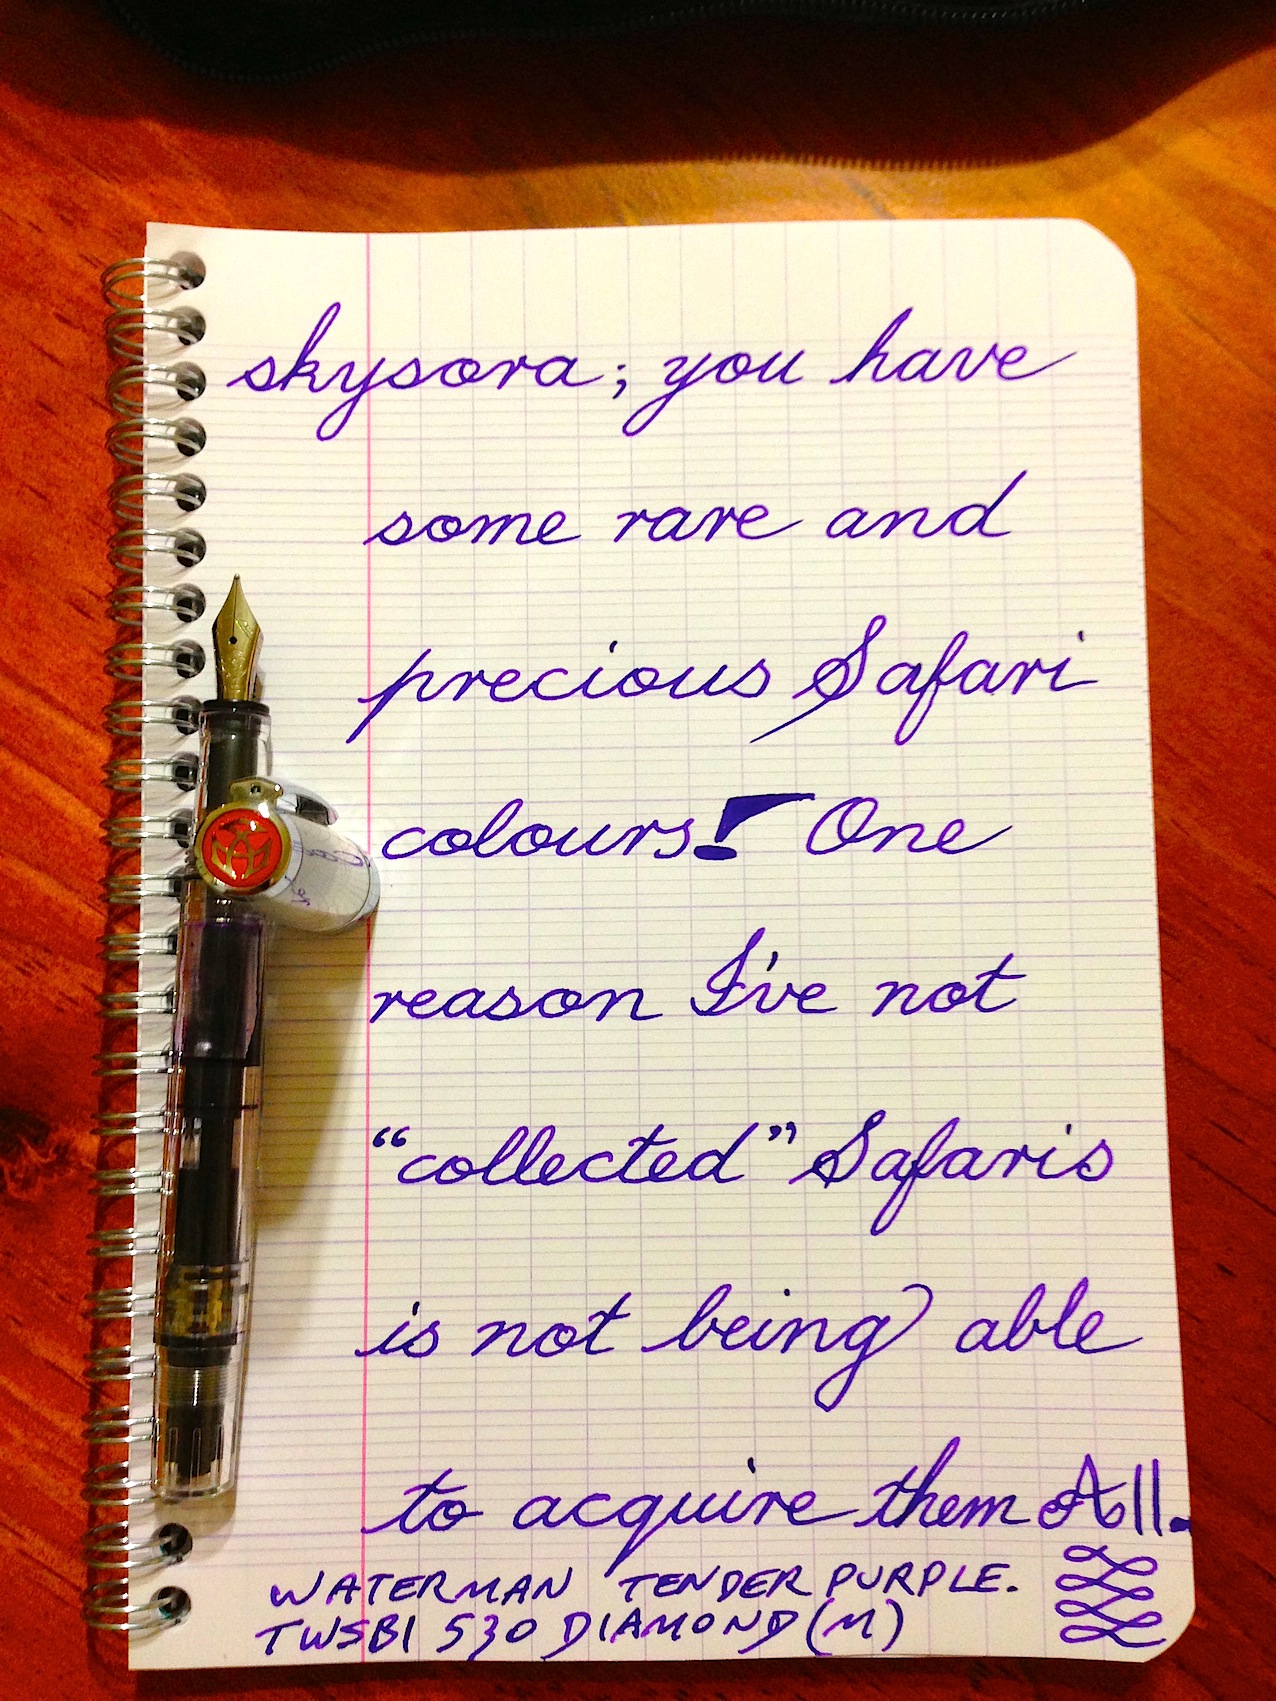 skysora; you have
some rare and
precious Safari
colours! One
reason I've not
"collected" Safaris
is not being able
to acquire them All.
WATERMAN TENDER PURPLE.
TWSBI 530 DIAMOND (M)